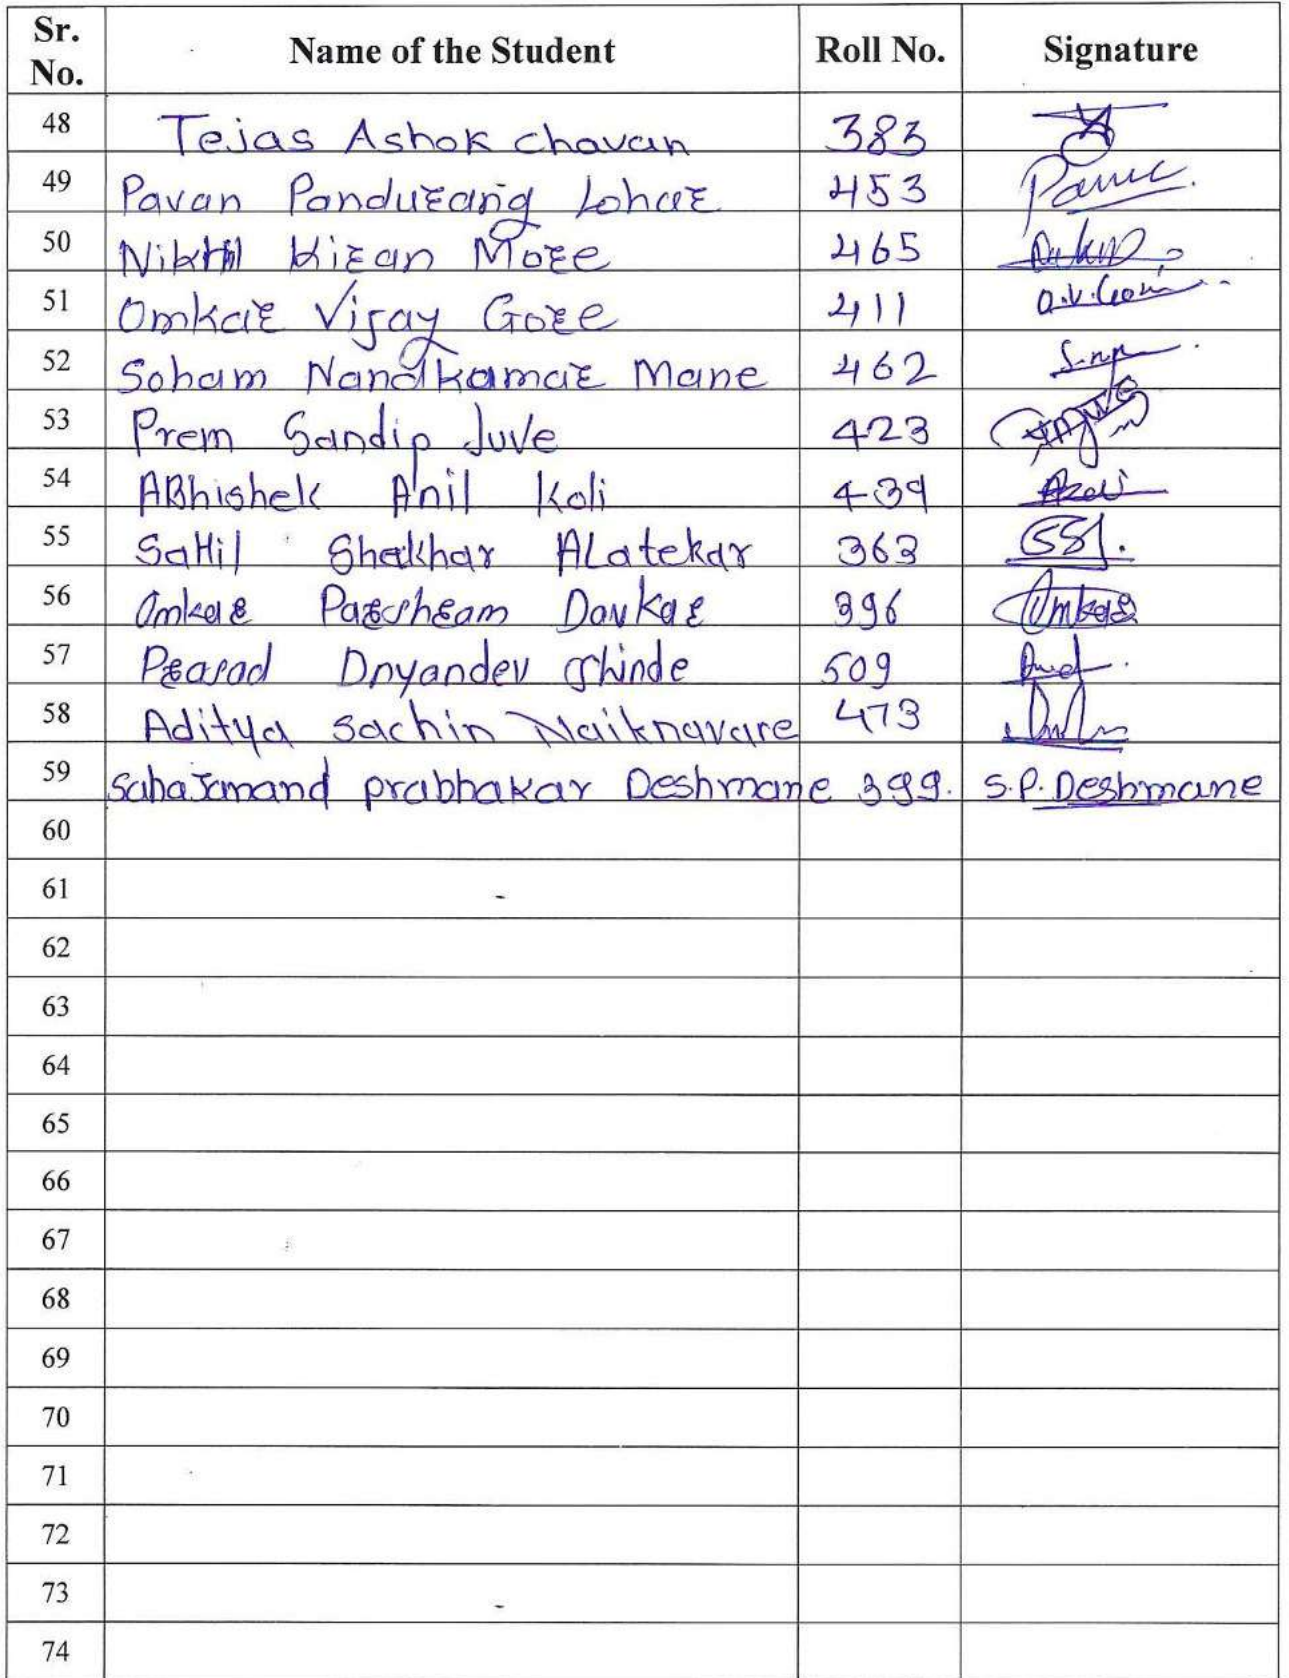 Sr. No. Name of the Student Roll No. Signature
48 Tejas Ashok chavan 383
49 Pavan Pandurang Lohar 453
50 Nikhil Kiran More 465
51 Omkar Vijay Gore 411 O.V.Gore
52 Soham Nandkamar Mane 462
53 Prem Sandip Juve 423
54 ABhishek Anil Koli 439
55 SaHil Shekhar ALatekar 363 SSA.
56 Omkar Parshram Davkar 396 Omkar
57 Prasad Dnyandev Shinde 509
58 Aditya Sachin Naiknavare 473
59 Sahajanand prabhakar Deshmane 399. S.P. Deshmane
60
61
62
63
64
65
66
67
68
69
70
71
72
73
74